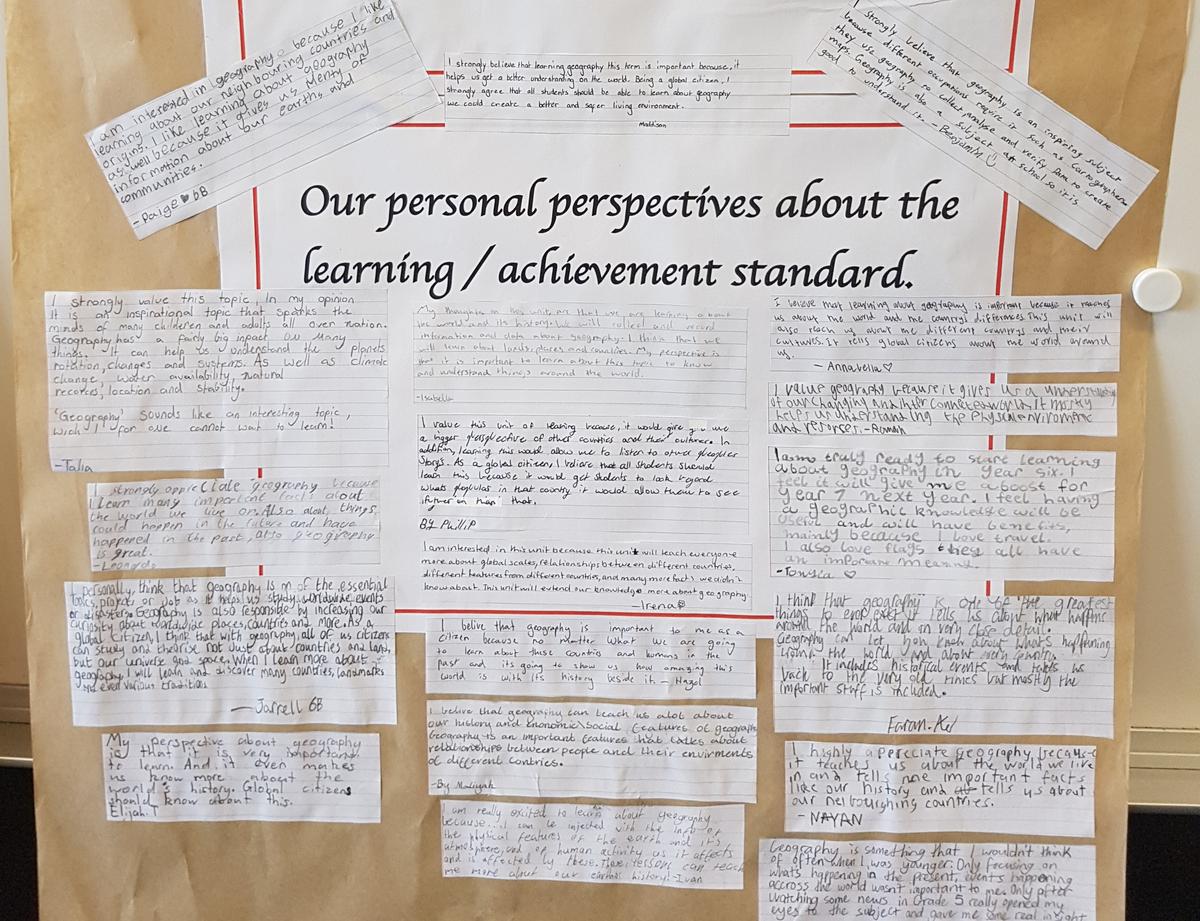 I am interested in geography because I like
learning about our neighbouring countries and
origins. I like learning about geography
as well because it gives us identy of
information about our earths and
communities.
-Paige ♥ 6B
I strongly believe that learning geography this term is important because, it
helps us get a better understanding on the world. Being a global citizen, I
strongly agree that all students should be able to learn about geography
we could create a better and safer living environment.
Maddison
I strongly believe that geography is an inspiring subject
because different occupations require it such as Cartographer
they use geography to collect, analyse and verify data to create
maps. Geography is also a subject at school so it is
good to understand it. - Benjamin
Our personal perspectives about the
learning / achievement standard.
I strongly value this topic, In my opinion
It is an inspirational topic that sparks the
minds of many children and adults all over nation.
Geography has a fairly big impact on many
things. It can help us understand the planets
rotation, changes and systems. As well as climate
change, water availability, natural
records, location and stability.
'Geography' sounds like an interesting topic,
wich I for one cannot wait to learn!
-Talia
I strongly appriciate geography because
I learn many important facts about
the world we live on. Also about, things
could happen in the future and have
happened in the past, also geography
is great.
-Leonardo
I personally, think that geography is on of the essential
topics, projects or job as it helps us study worldwide events
or disasters. Geography is also responsible by increasing our
curiosity about worldwide places, countries and more. As a
global citizen, I think that with geography, all of us citizens
can study and theorise not just about countries and land,
but our universe and space. When I learn more about
geography I will learn and discover many countries, landmarks
and even various traditions.
—Jarrell 6B
My perspective about geography
is that it is very important
to learn. And it even makes
us know more about the
world's history. Global citizens
should know about this.
Elijah.T
My thoughts on this unit are that we are learning about
the world and its history. We will collect and record
information and data about geography. I think that we
will learn about lands, places and countries. My perspective is
that it is important to learn about this topic to know
and understand things around the world.
-Isabella
I value this unit of learning because, it would give you me
a bigger perspective of other counties and their cultures. In
addition, learning this would allow me to listen to other peoples
storys. As a global citizen, I belive that all students should
learn this because it would get students to look beyond
whats popular in that country, it would allow them to see
further on than that.
By Phillip
I am interested in this unit because this unit will teach everyone
more about global scales, relationships between different countries,
different features from different countries, and many more facts we didn't
know about. This unit will extend our knowledge more about geography
—Irena
I belive that geography is important to me as a
citizen because no matter what we are going
to learn about these countis and humans in the
past and its going to show us how amazing this
world is with its history beside it — Hazel
I believe that geography can teach us alot about
our history and enonomic\social features of geography
Geography is an important features that talks about
relationships between people and their envirments
of different contries.
-By Maliyah
I am really excited to learn about geography
because... I can be injected with the info of
the physical features of the earth and it's
atmosphere, and of human activity as it affects
and is affected by these. These lessons can teach
me more about our earths history! -Ivan
I believe that learning about geography is important because it teaches
us about the world and the country's differences. This unit will
also teach us about the different countrys and their
cultures. It tells global citizens about the world around
us.
— Annabella ♡
I value geography because it gives us a understanding
of our changing and inter connected world. It mostly
helps us understanding the physical enviroment
and resorses. - Roman
I am truly ready to start learning
about geography in year six. I
feel it will give me a boost for
Year 7 next year. I feel having
a geographic knowledge will be
useful and will have benefits,
mainly because I love travel.
I also love flags they all have
an important meaning.
-Tonyia ♡
I think that geography is one of the greatest
things to ever exist. It tells us about what happens
around the world and in very close detail.
Geography can let you know about what's happening
around the world and about every country.
It includes historical events and takes us
back to the very old times but mostly the
important stuff is included.
Faran.Kd
I highly apereciate geography because
it teaches us about the world we live
in and tells me important facts
like our history and tells us about
our neibourghing countries.
- NAYAN
Geography is something that I wouldn't think
of often when I was younger. Only focusing on
whats happening in the present, events happening
accross the world wasn't important to me. Only after
watching some news in Grade 5 really opened my
eyes to the subject and gave me some real insight